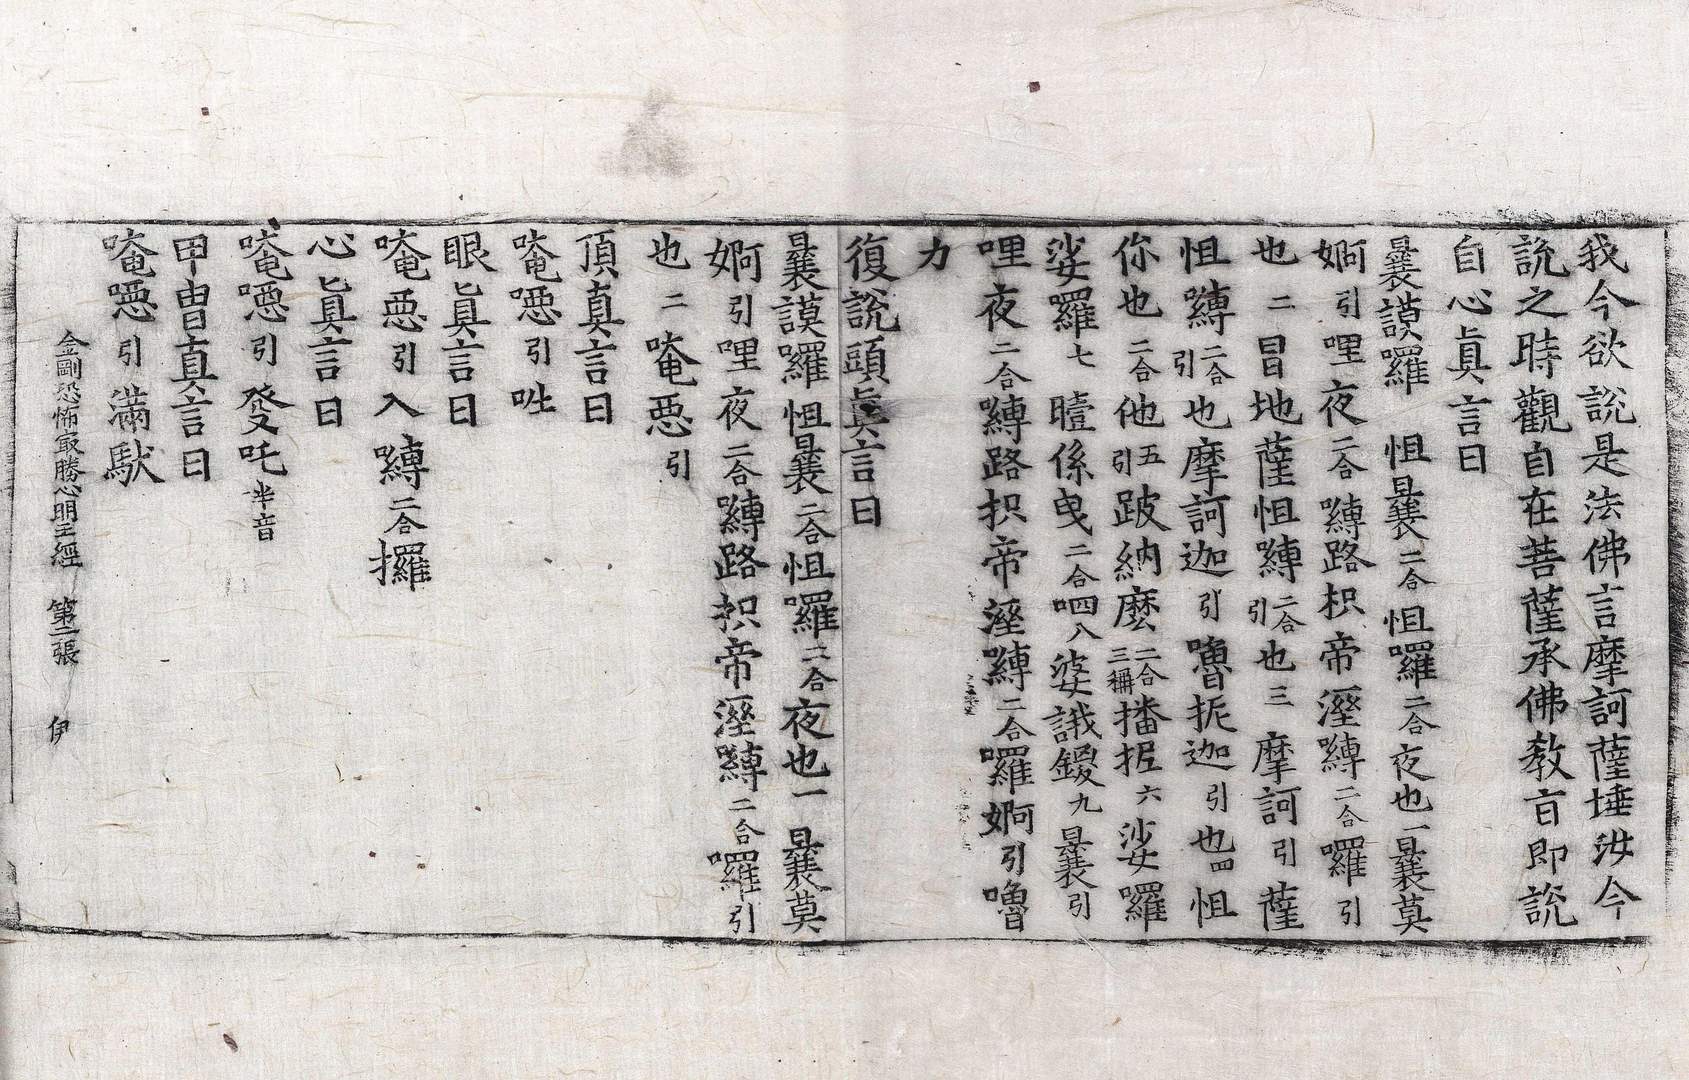 我今欲說是法佛言摩訶薩埵汝今
說之時觀自在菩薩承佛教旨即說
自心眞言曰
曩謨囉怛曩二合怛囉二合夜也一曩莫
婀引哩夜二合嚩路枳帝溼嚩二合囉引
也二冒地薩怛嚩二合引也三摩訶引薩
怛嚩二合引也摩訶迦引嚕抳迦引也四怛
你也二合他五引跛納麽二合三稱播抳六娑囉
娑囉七曀係曳二合呬八婆誐鑁九曩引
哩夜二合嚩路枳帝溼嚩二合囉婀引嚕
力
復說頭眞言曰
曩謨囉怛曩二合怛囉二合夜也一曩莫
婀引哩夜二合嚩路枳帝溼嚩二合囉引
也二唵惡引
頂眞言曰
唵噁引吽
眼眞言曰
唵惡引入嚩二合攞
心眞言曰
唵噁引發吒半音
甲冑眞言曰
唵噁引滿馱
金剛恐怖冣勝心明王經 第二張 伊